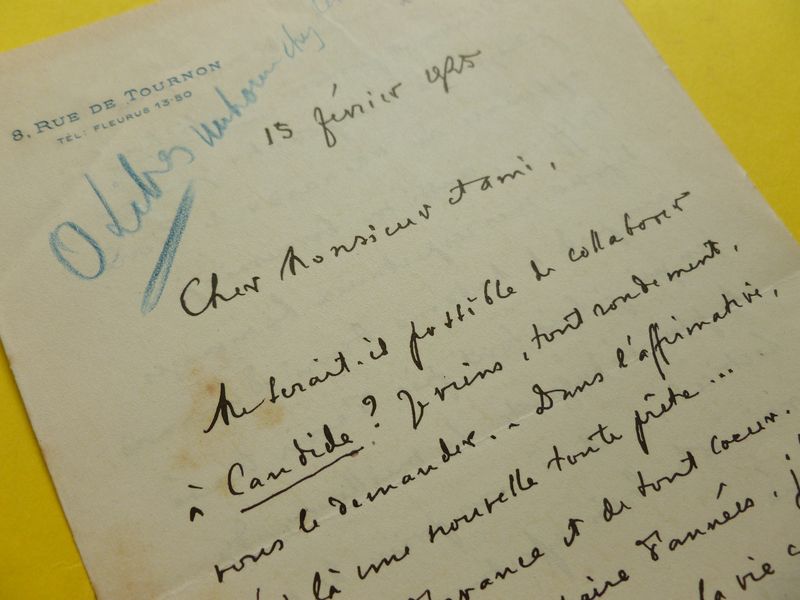 8, RUE DE TOURNON
TÉL: FLEURUS 13-50
15 février 1925
Cher Monsieur et ami,
Me serait-il possible de collaborer
à Candide? Je viens, tout rondement,
vous le demander.. Dans l'affirmative,
là une nouvelle toute prête...
et de tout coeur.
d'années, j'
la vie